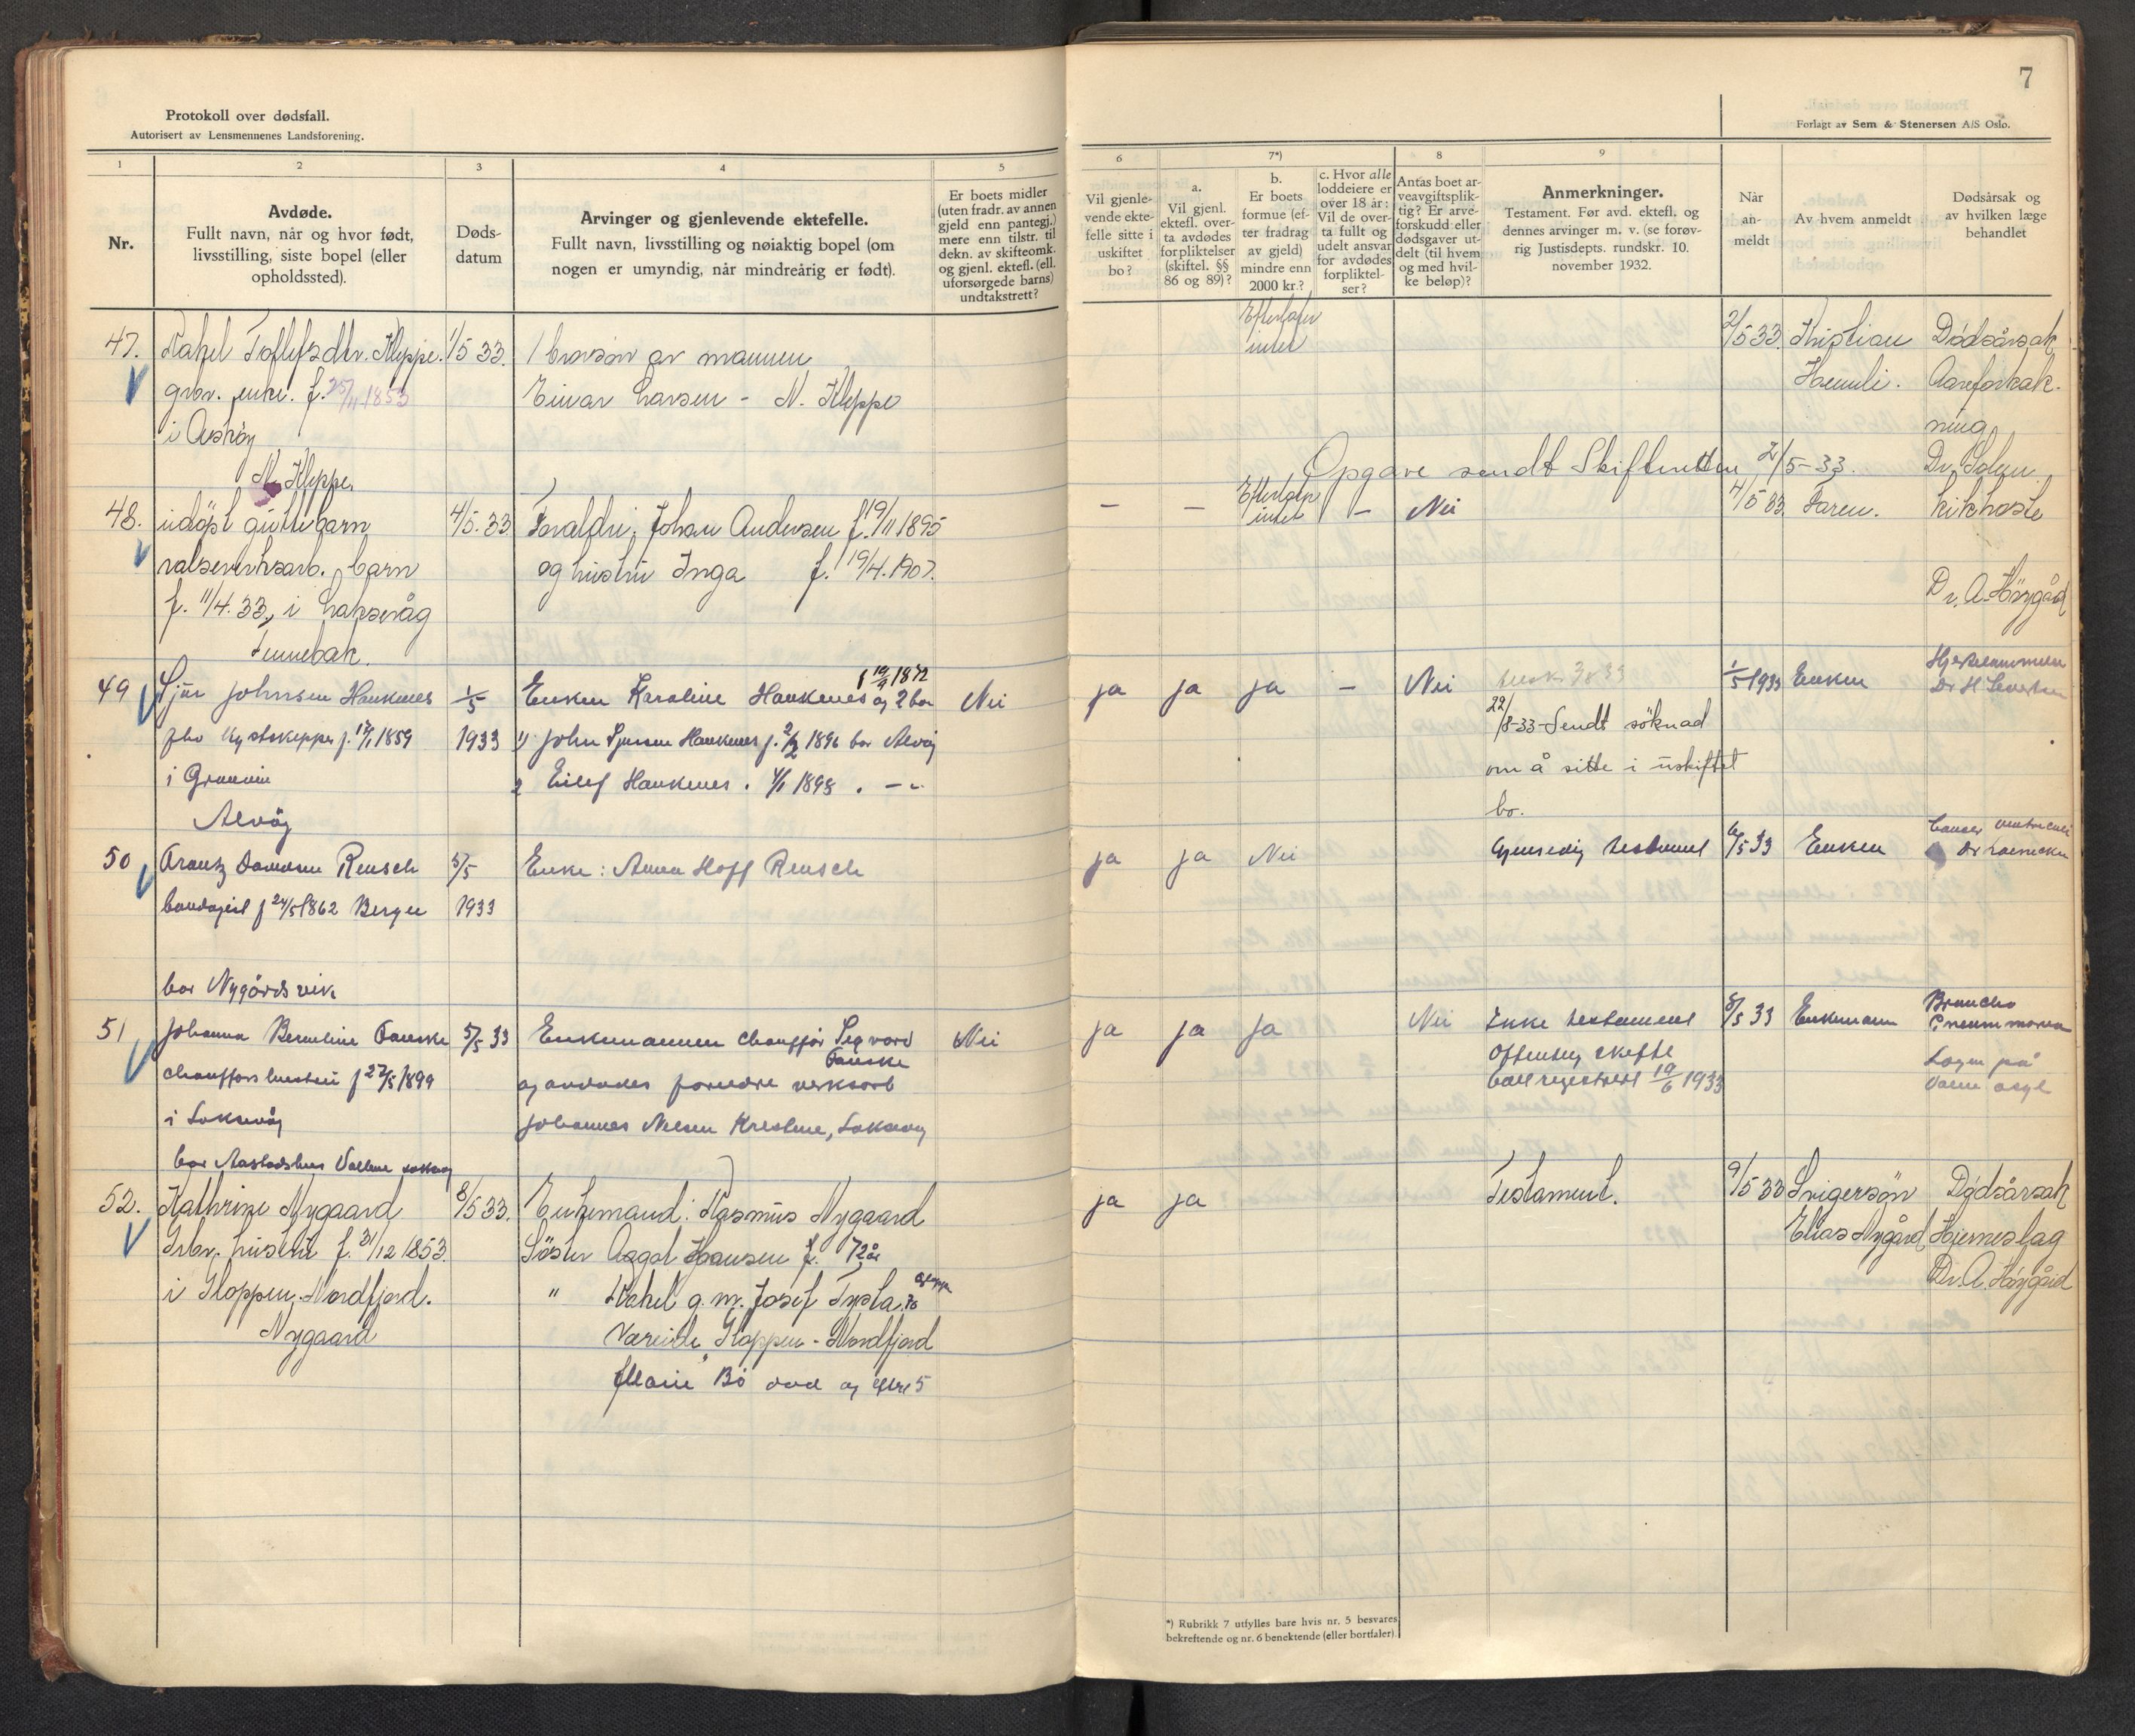 7
Protokoll over dødsfall.
Autorisert av Lensmennenes Landsforening.
Forlagt av Sem & Stenersen A/S Oslo.
1
2
3
4
5
6
7*)
8
9
Nr.
Avdøde.
Fullt navn, når og hvor født,
livsstilling, siste bopel (eller
opholdssted).
Døds-
datum
Arvinger og gjenlevende ektefelle.
Fullt navn, livsstilling og nøiaktig bopel (om
nogen er umyndig, når mindreårig er født).
Er boets midler
(uten fradr. av annen
gjeld enn pantegj.)
mere enn tilstr. til
dekn. av skifteomk.
og gjenl. ektefl. (ell.
uforsørgede barns)
undtakstrett?
Vil gjenle-
vende ekte-
felle sitte i
uskiftet
bo?
a.
Vil gjenl.
ektefl. over-
ta avdødes
forpliktelser
(skiftel. §§
86 og 89)?
b.
Er boets
formue (ef-
ter fradrag
av gjeld)
mindre enn
2000 kr.?
c. Hvor alle
loddeiere er
over 18 år:
Vil de over-
ta fullt og
udelt ansvar
for avdødes
forpliktel-
ser?
Antas boet ar-
veavgiftsplik-
tig? Er arve-
forskudd eller
dødsgaver ut-
delt (til hvem
og med hvil-
ke beløp)?
Anmerkninger.
Testament. Før avd. ektefl. og
dennes arvinger m. v. (se forøv-
rig Justisdepts. rundskr. 10.
november 1932.
Når
an-
meldt
Av hvem anmeldt
Dødsårsak og
av hvilken læge
behandlet
47. Rakel Tollefsdtr. Kleppe. 1/5 33. 1 brorsön av mannen
grbr. enke. f. 25/11 1853 Einar Larsen - N. Kleppe
i Askøy
N. Kleppe.
Efterlater
intet
2/5 33. Kristian Dødsårsak
Hemli. Aareforkalk-
ning
Opgave sendt Skifteretten 2/5-33. Dr. Solem.
48. udöpt guttebarn 4/5.33 Foreldre, Johan Andersen f. 19/11 1895
valseverksarb. barn og hustru Inga f. 19/4.1907.
f. 11/4.33, i Laksevåg
Tennebæk.
- - Efterlater
intet - Nei 4/5 33. Faren. Kikhoste
Dr. A. Höygård
49 Sjur Johnsen Haukenes 1/5 Enken Karoline Haukenes f 19/9 1872 og 2 bar Nei
fhv kystskipper f. 17/1 1859 1933 1) John Sjursen Haukenes f. 2/2 1896 bor Alvöy
i 2 Eilef Haukenes . 4/1 1898 . - " -
Alvöy
ja ja ja - Nei 1/5 1933 Enken
22/8-33-Sendt söknad
om å sitte i uskiftet
bo.
50 Danielsen Rensch 5/5 Enke: Anna Hoff Rensch
bandagist f 24/5 1862 Bergen 1933
bor Nygårdsvik
ja ja Nei Gjensidig testament 6/5 33 Enken Cancer ventriculi
51 Johanna Berntine Fauske 5/5 33 Enkemannen chauffør Sigvard Nei
Fauske
chaufførs hustru f 27/5 1899 og avdødes foreldre verksarb
i Laksevåg Johannes Nilsen Kristine, Laksevåg
ja ja ja Nei Ikke testament 8/5 33 Enkemann Broncho
Pneummonia
Offentlig skifte
19/6 1933
Lægen på
asyl
52. Kathrine Nygaard 8/5 33. Enkemand: Rasmus Nygaard
Grbr. hustru f. 31/12 1853. Söster Aagot Hansen f. 72 år
i Gloppen, Nordfjord. " Rakel g. m. Josef Tysta. 70
Nygaard Vereide, Gloppen - Nordfjord
Marie Bö död og efterl 5
ja ja Testament. 9/5 33 Svigersön Dødsårsak
Elias Nygård Hjerneslag
Dr. A. Höygård
*) Rubrikk 7 utfylles bare hvis nr. 5 besvares
bekreftende og nr. 6 benektende (eller bortfaler).